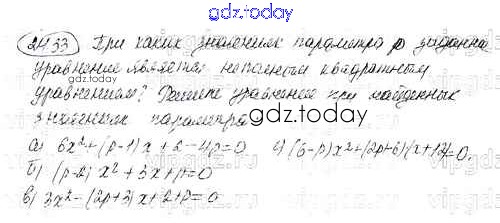 gdz.today
24.33 При каких значениях параметра p заданное
уравнение является неполным квадратным
уравнением? Решите уравнение при найденных
значениях параметра
gdz.today
gdz.today
а) 6x²+(p-1)x+2-4p=0 г) (6-p)x²+(2p+6)x+12=0.
б) (p-2)x²+3x+p=0
в) 3x²-(2p+3)x+2+p=0